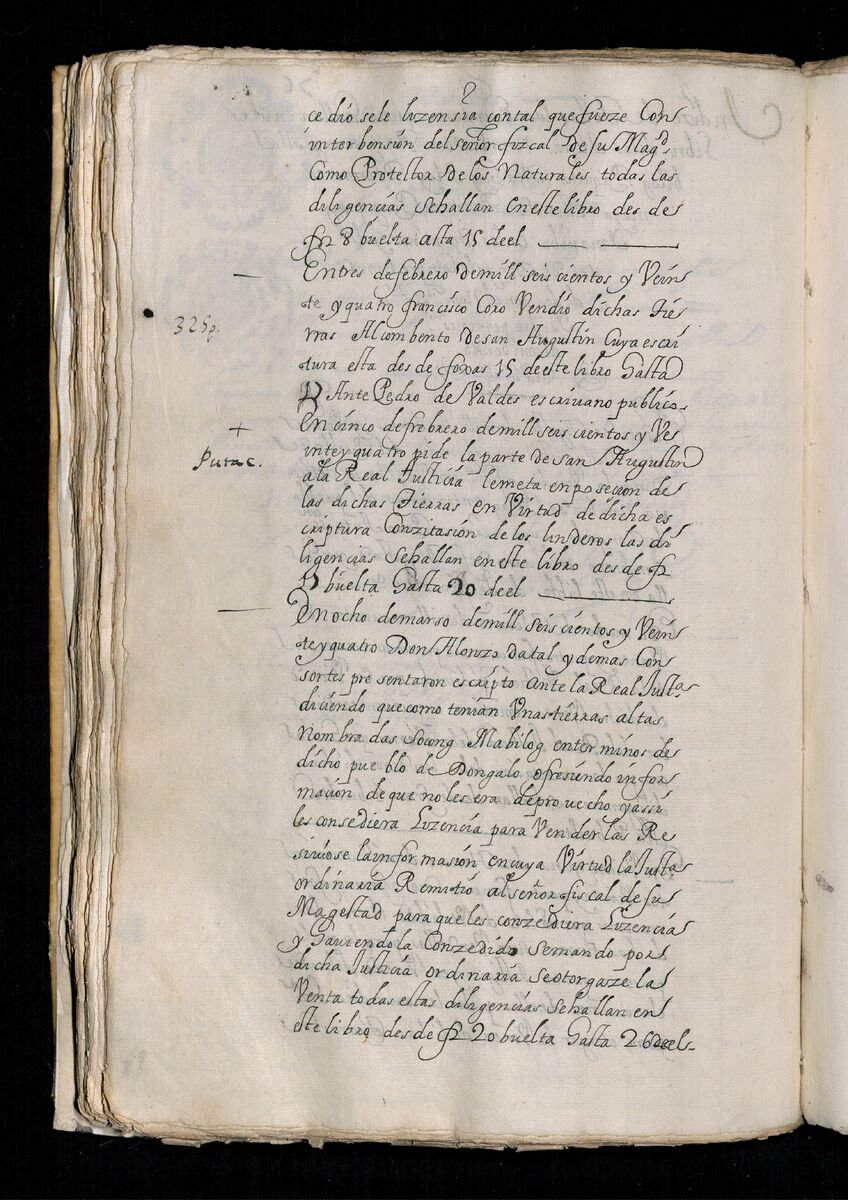 2
ce dio sele lizensia contal que fueze Con
interbension del señor fizcal de su Magd.
Como Protector de los Naturales todas las
diligencias Sehallan en este libro des de
fx 8 buelta asta 15 deel
Entres de febrero demill seis cientos y Vein
te y quatro francisco Coxo Vendio dichas Tie
rras Al combento de san Augustin Cuya escri
325p.
tura esta des de foxas 15 de este libro hasta
17 Ante Pedro de Valdes escrivano publico
En cinco de frebrero demill seis cientos y Ve
+
intey quatro pide la parte de san Augustin
Putac.
ala Real Justicia lemeta en posecion de
las dichas Tierras en Virtud de dicha es
criptura Conzitasion de los linderos las di
ligencias Sehallan en este libro des de fx
17 buelta hasta 20 deel
En ocho demarso demill seis cientos y Vein
tey quatro Don Alonzo datal y demas Con
sortes pre sentaron escripto ante la Real Justa
diciendo que como tenian Unas tierras altas
Nombra das Socong Mabilog enter minos de
dicho pue blo de Dongalo ofresiendo infor
macion de que no les era deprovecho y assi
les consediera Lizencia para Vender las Re
siviose la infor masion en cuya Virtud la Justa
ordinaria Remitio al señor fiscal de su
Magestad para que les conzediera Lizencia
y haviendola Conzedido semando por
dicha Justicia ordinaria se otorgaze la
Venta todas estas diligencias sehallan en
este libro des de fx 20 buelta hasta 26 deel